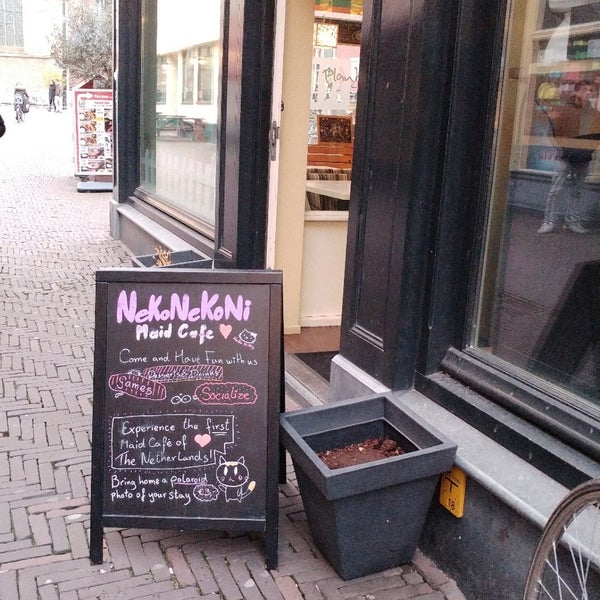 NeKoNeKoNi
Maid Cafe
Come and Have Fun with us
Desserts & Drinks
Games
Socialize
Experience the first
Maid Café of
The Netherlands!
Bring home a polaroid
photo of your stay €3
18